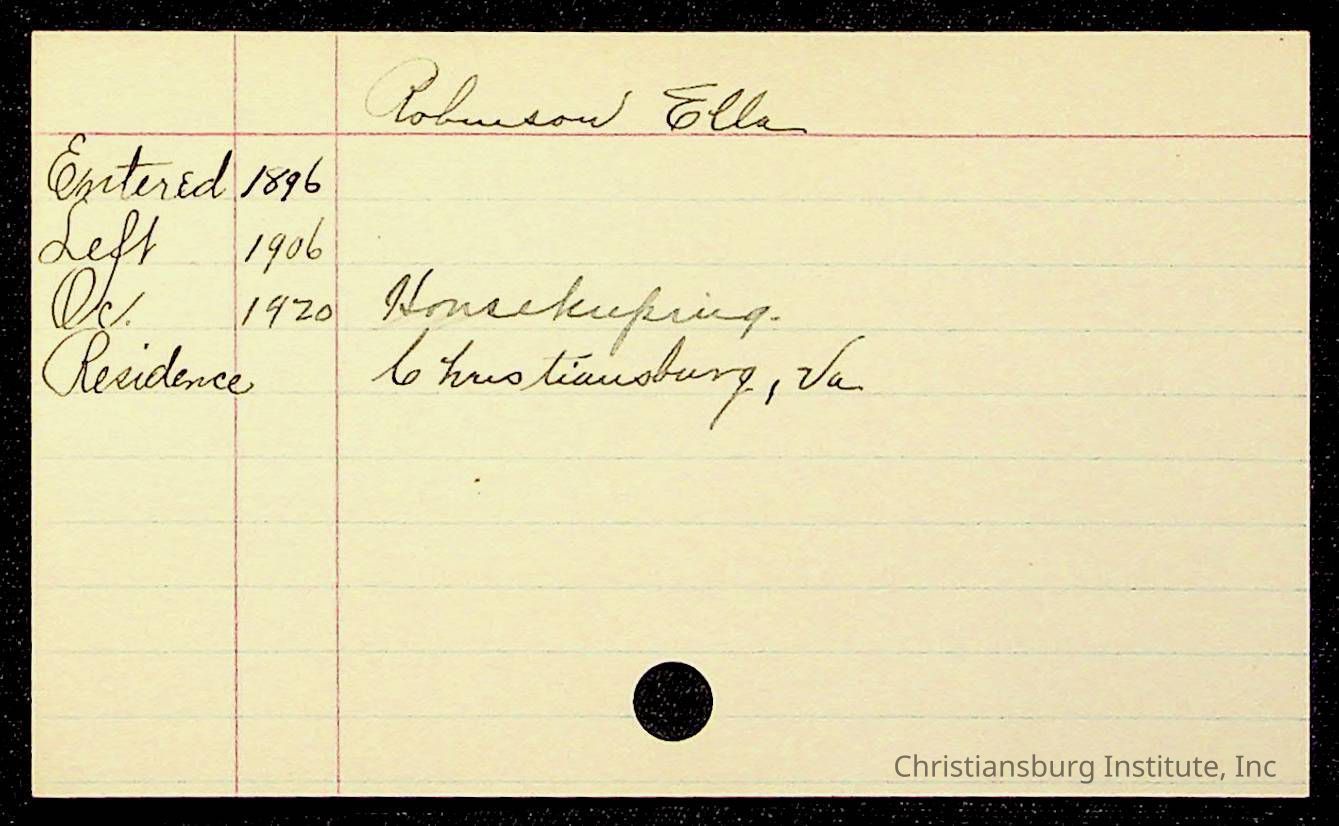 Robinson Ella
Entered 1896
Left 1906
Oc. 1920 Housekeeping.
Residence Christiansburg, Va.
Christiansburg Institute, Inc